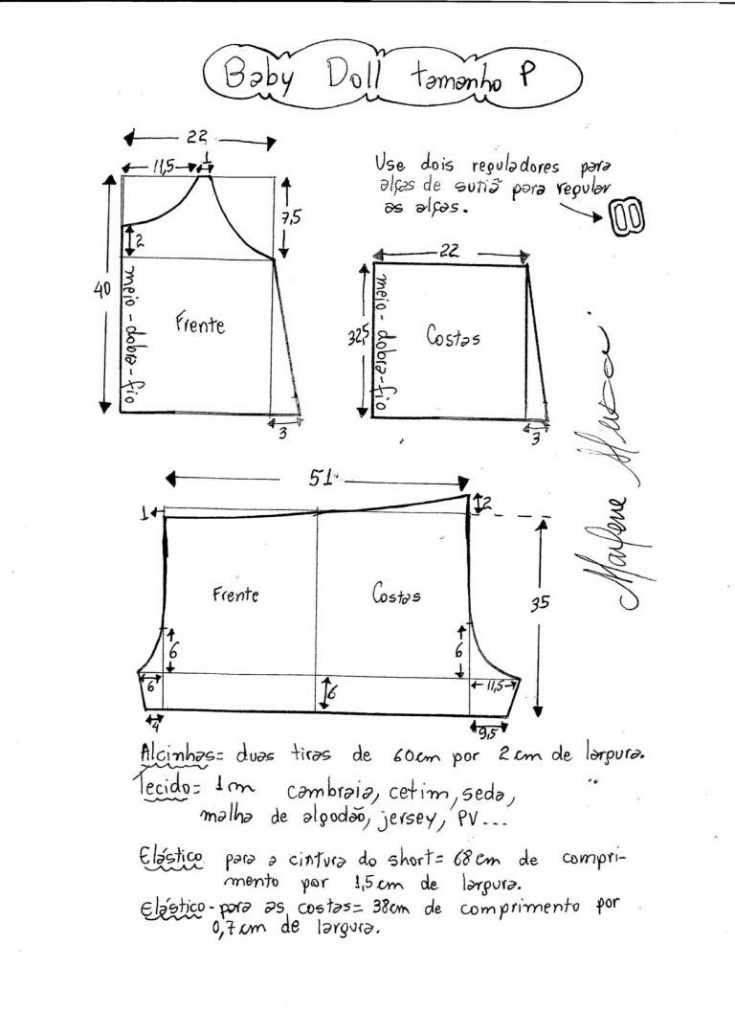 Baby Doll tamanho P
22
11,5
1
7,5
2
40
meio-dobra-fio
Frente
3
Use dois reguladores para
alças de sutiã para regular
as alças.
22
32,5
meio-dobra-fio
Costas
3
Marlene Mukai
51
1
2
Frente
Costas
35
6
6
6
6
11,5
4
9,5
Alcinhas= duas tiras de 60cm por 2cm de largura.
Tecido= 1m cambraia, cetim, seda,
malha de algodão, jersey, PV...
Elástico para a cintura do short= 68cm de compri-
mento por 1,5cm de largura.
Elástico-para as costas= 38cm de comprimento por
0,7cm de largura.